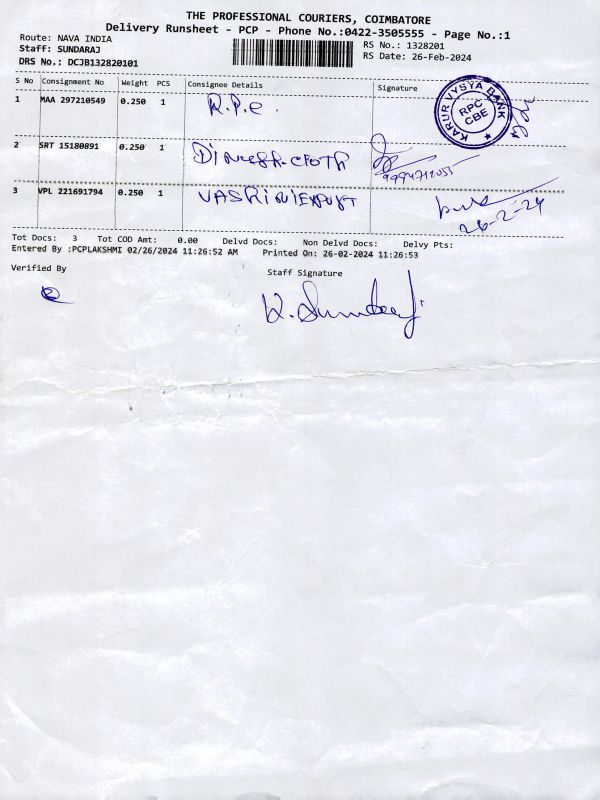 THE PROFESSIONAL COURIERS, COIMBATORE
Delivery Runsheet - PCP - Phone No.:0422-3505555 - Page No.:1
Route: NAVA INDIA
RS No.: 1328201
Staff: SUNDARAJ
RS Date: 26-Feb-2024
DRS No.: DCJB132820101
S No Consignment No Weight PCS Consignee Details Signature
1 MAA 297210549 0.250 1 R.P.C.
KARUR VYSYA BANK
RPC
CBE
2 SRT 15180891 0.250 1 Dinesh-CLOTH
3 VPL 221691794 0.250 1
26-2-24
Tot Docs: 3 Tot COD Amt: 0.00 Delvd Docs: Non Delvd Docs: Delvy Pts:
Entered By :PCPLAKSHMI 02/26/2024 11:26:52 AM Printed On: 26-02-2024 11:26:53
Verified By
Staff Signature
K. Sundaraj